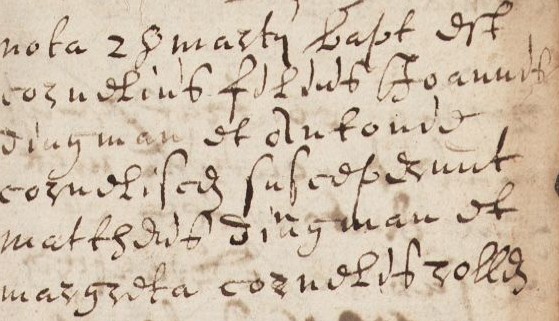 nota 28 martij bapt est
cornelius filius Joannis
dingman et Antonie
cornelisen susceperunt
mattheus dingman et
margreta cornelis